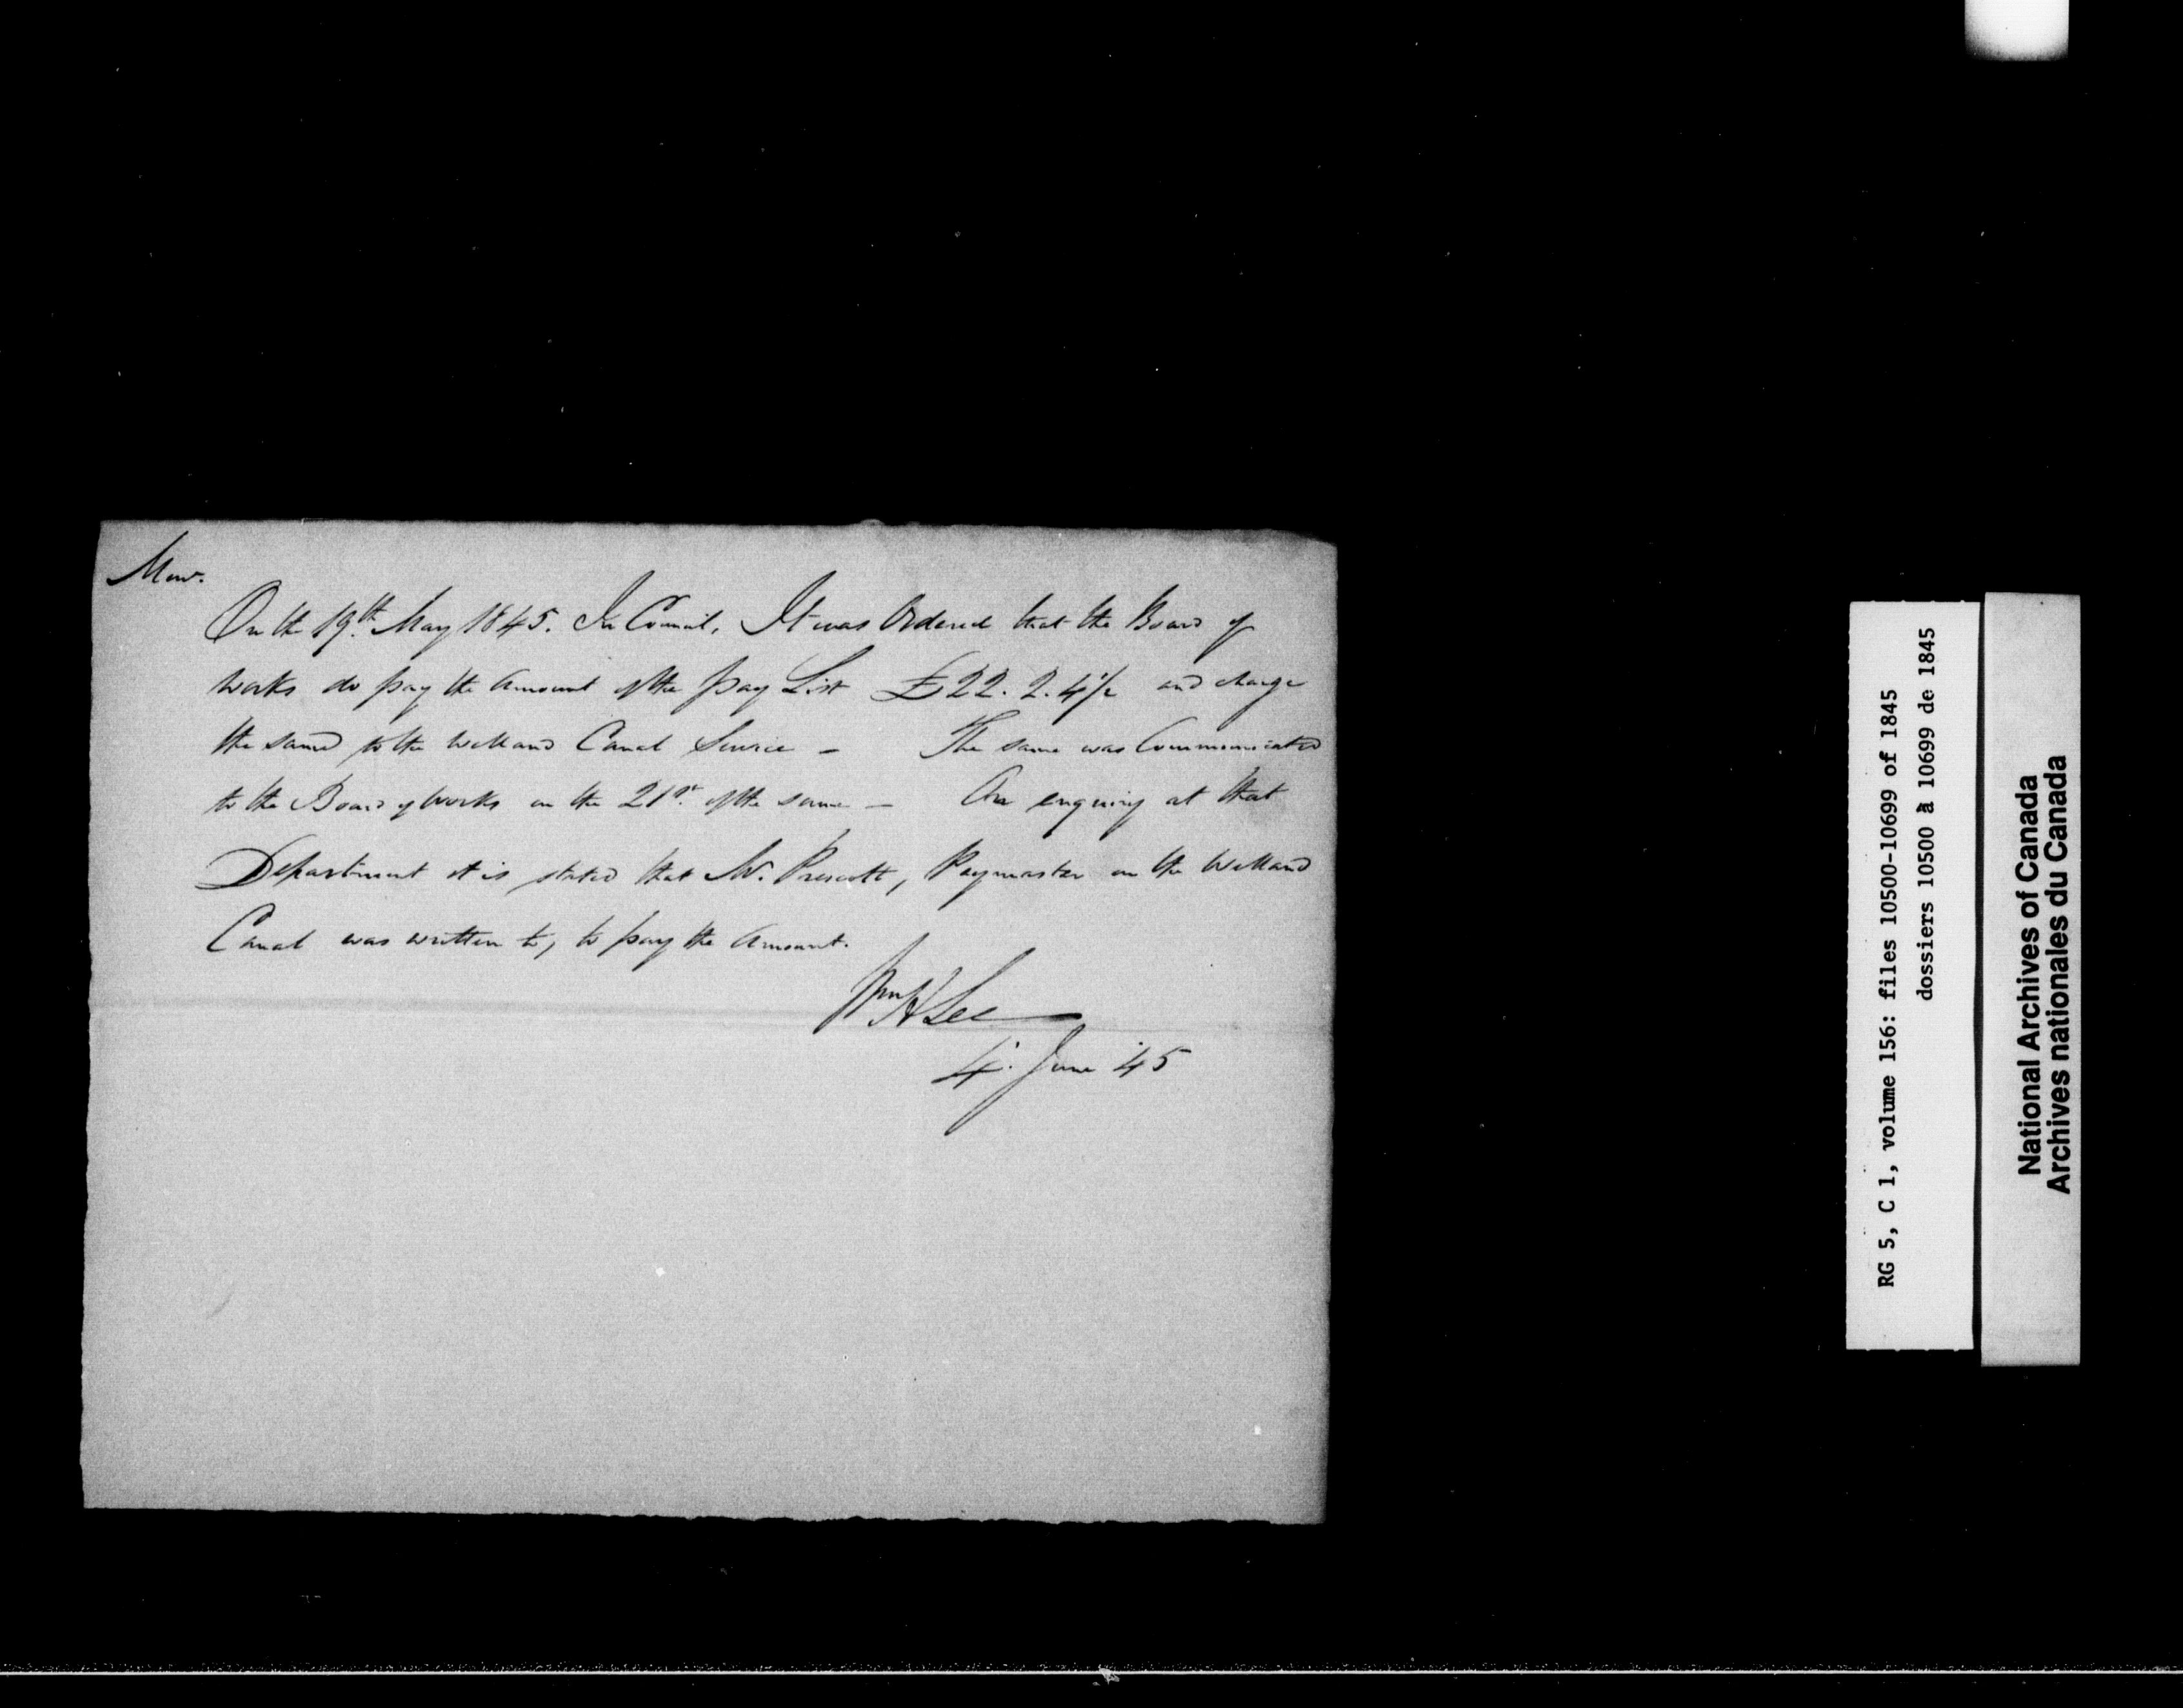 Mem.
On the 19th May 1845. In Council, It was Ordered that the Board of
Works do pay the Amount of the pay List £22. 2. 4½ and charge
the same to the Welland Canal Service - The same was Communicated
to the Board of Works on the 21st of the same - On enquiry at that
Department it is stated that Mr. Prescott, Paymaster on the Welland
Canal was written to, to pay the Amount.
Wm H Lee
4. June 45
RG 5, C 1, volume 156: files 10500-10699 of 1845
dossiers 10500 à 10699 de 1845
National Archives of Canada
Archives nationales du Canada